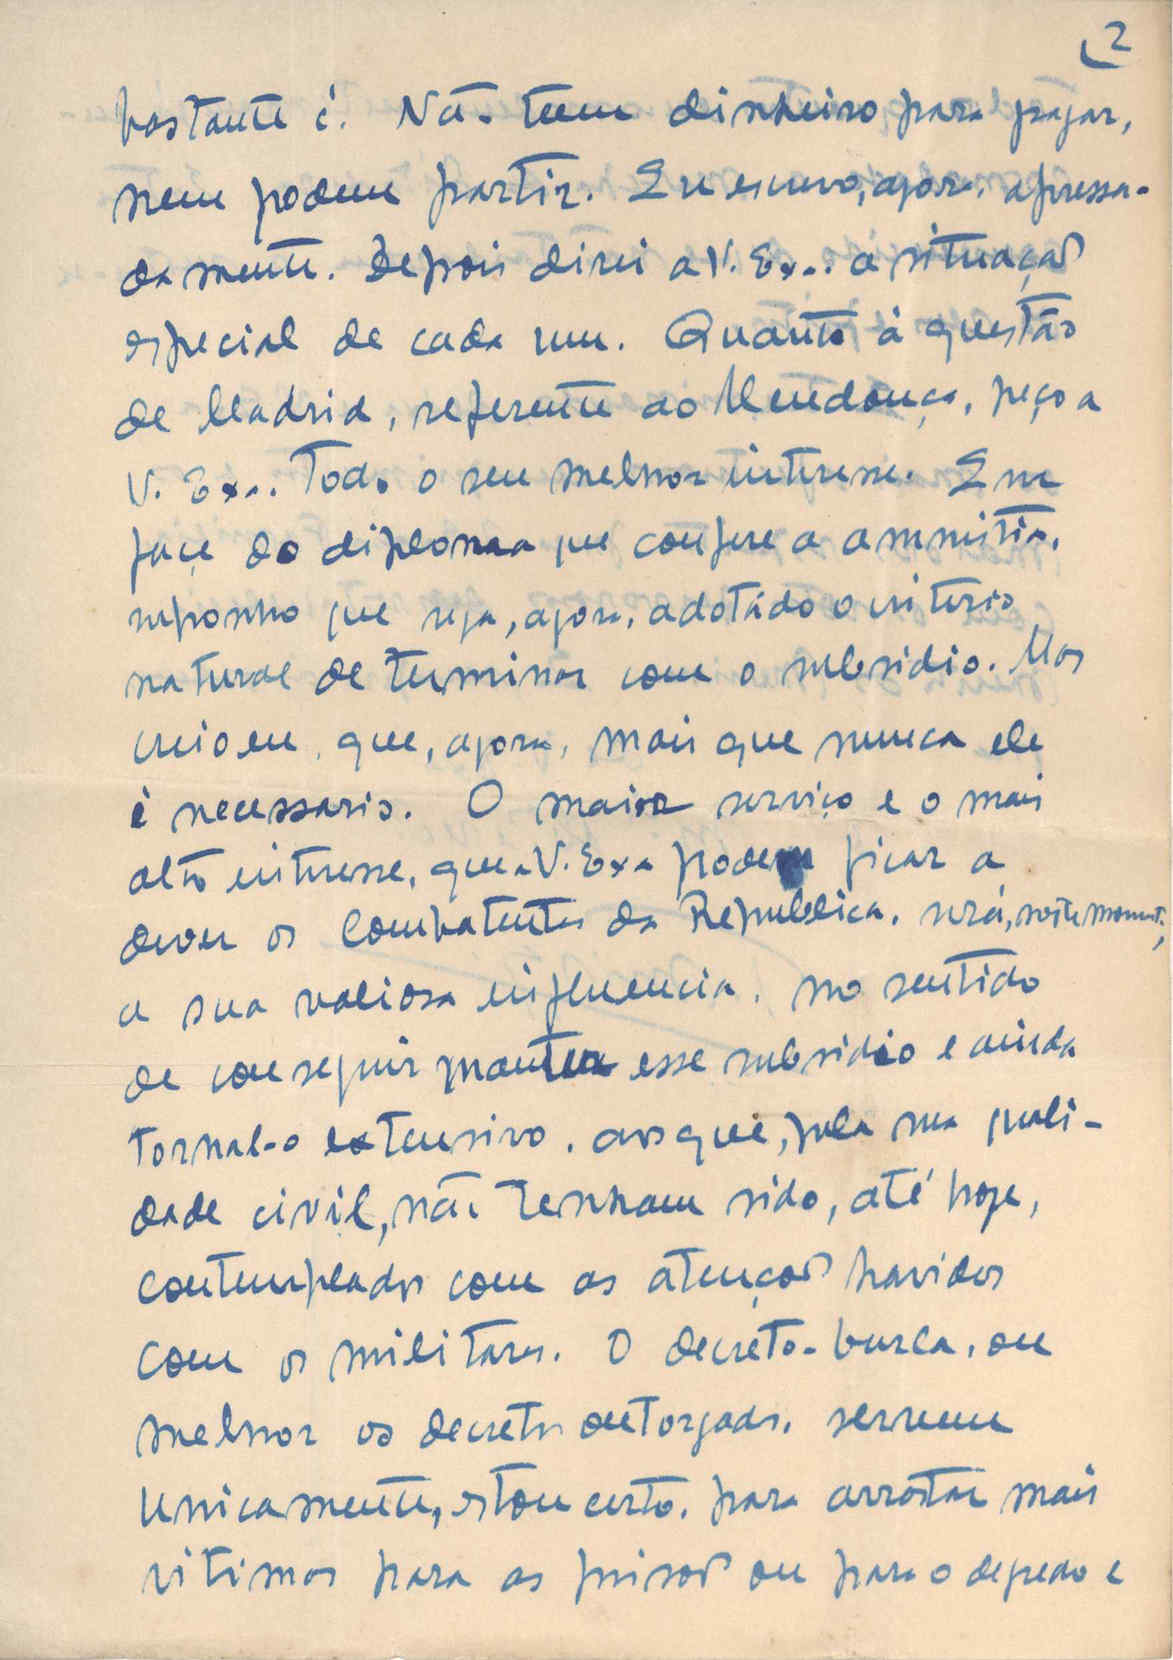 2
bastante é. Não teem dinheiro para pagar,
nem podem partir. Eu escrevo, agora, apressa-
damente. Depois direi a V. Exa. a situação
especial de cada um. Quanto á questão
de Madrid, referente ao Mendonça, peço a
V. Exa. Todo o seu melhor interesse. Em
face do diploma que confere a amnistia,
suponho que seja, agora, adotádo o criterio
natural de terminar com o subsidio. Mas
creio eu, que, agora, mais que nunca ele
é necessario. O maior serviço e o mais
alto interesse, que a V. Exa podem ficar a
dever os Combatentes da Republica, será, neste momento,
a sua valiosa influencia, no sentido
de conseguir manter esse subsidio e ainda
tornal-o extensivo, aos que, pela sua quali-
dade civil, não tenham sido, até hoje,
contemplados com as atenções havidas
com os militares. O decreto-burla, ou
melhor os decretos outorgados, servem
unicamente, estou certo, para arrastar mais
vitimas para as prisões ou para o degredo e